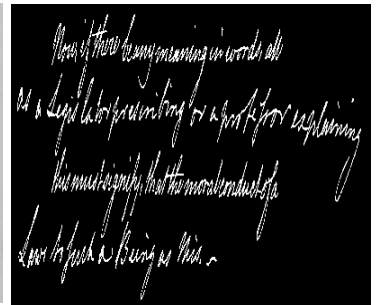 Now, if there be any meaning in words all
as a Legislator prescribing or a professor explaining
this must signify, that the moral conduct of a
Law to such a Being as this.